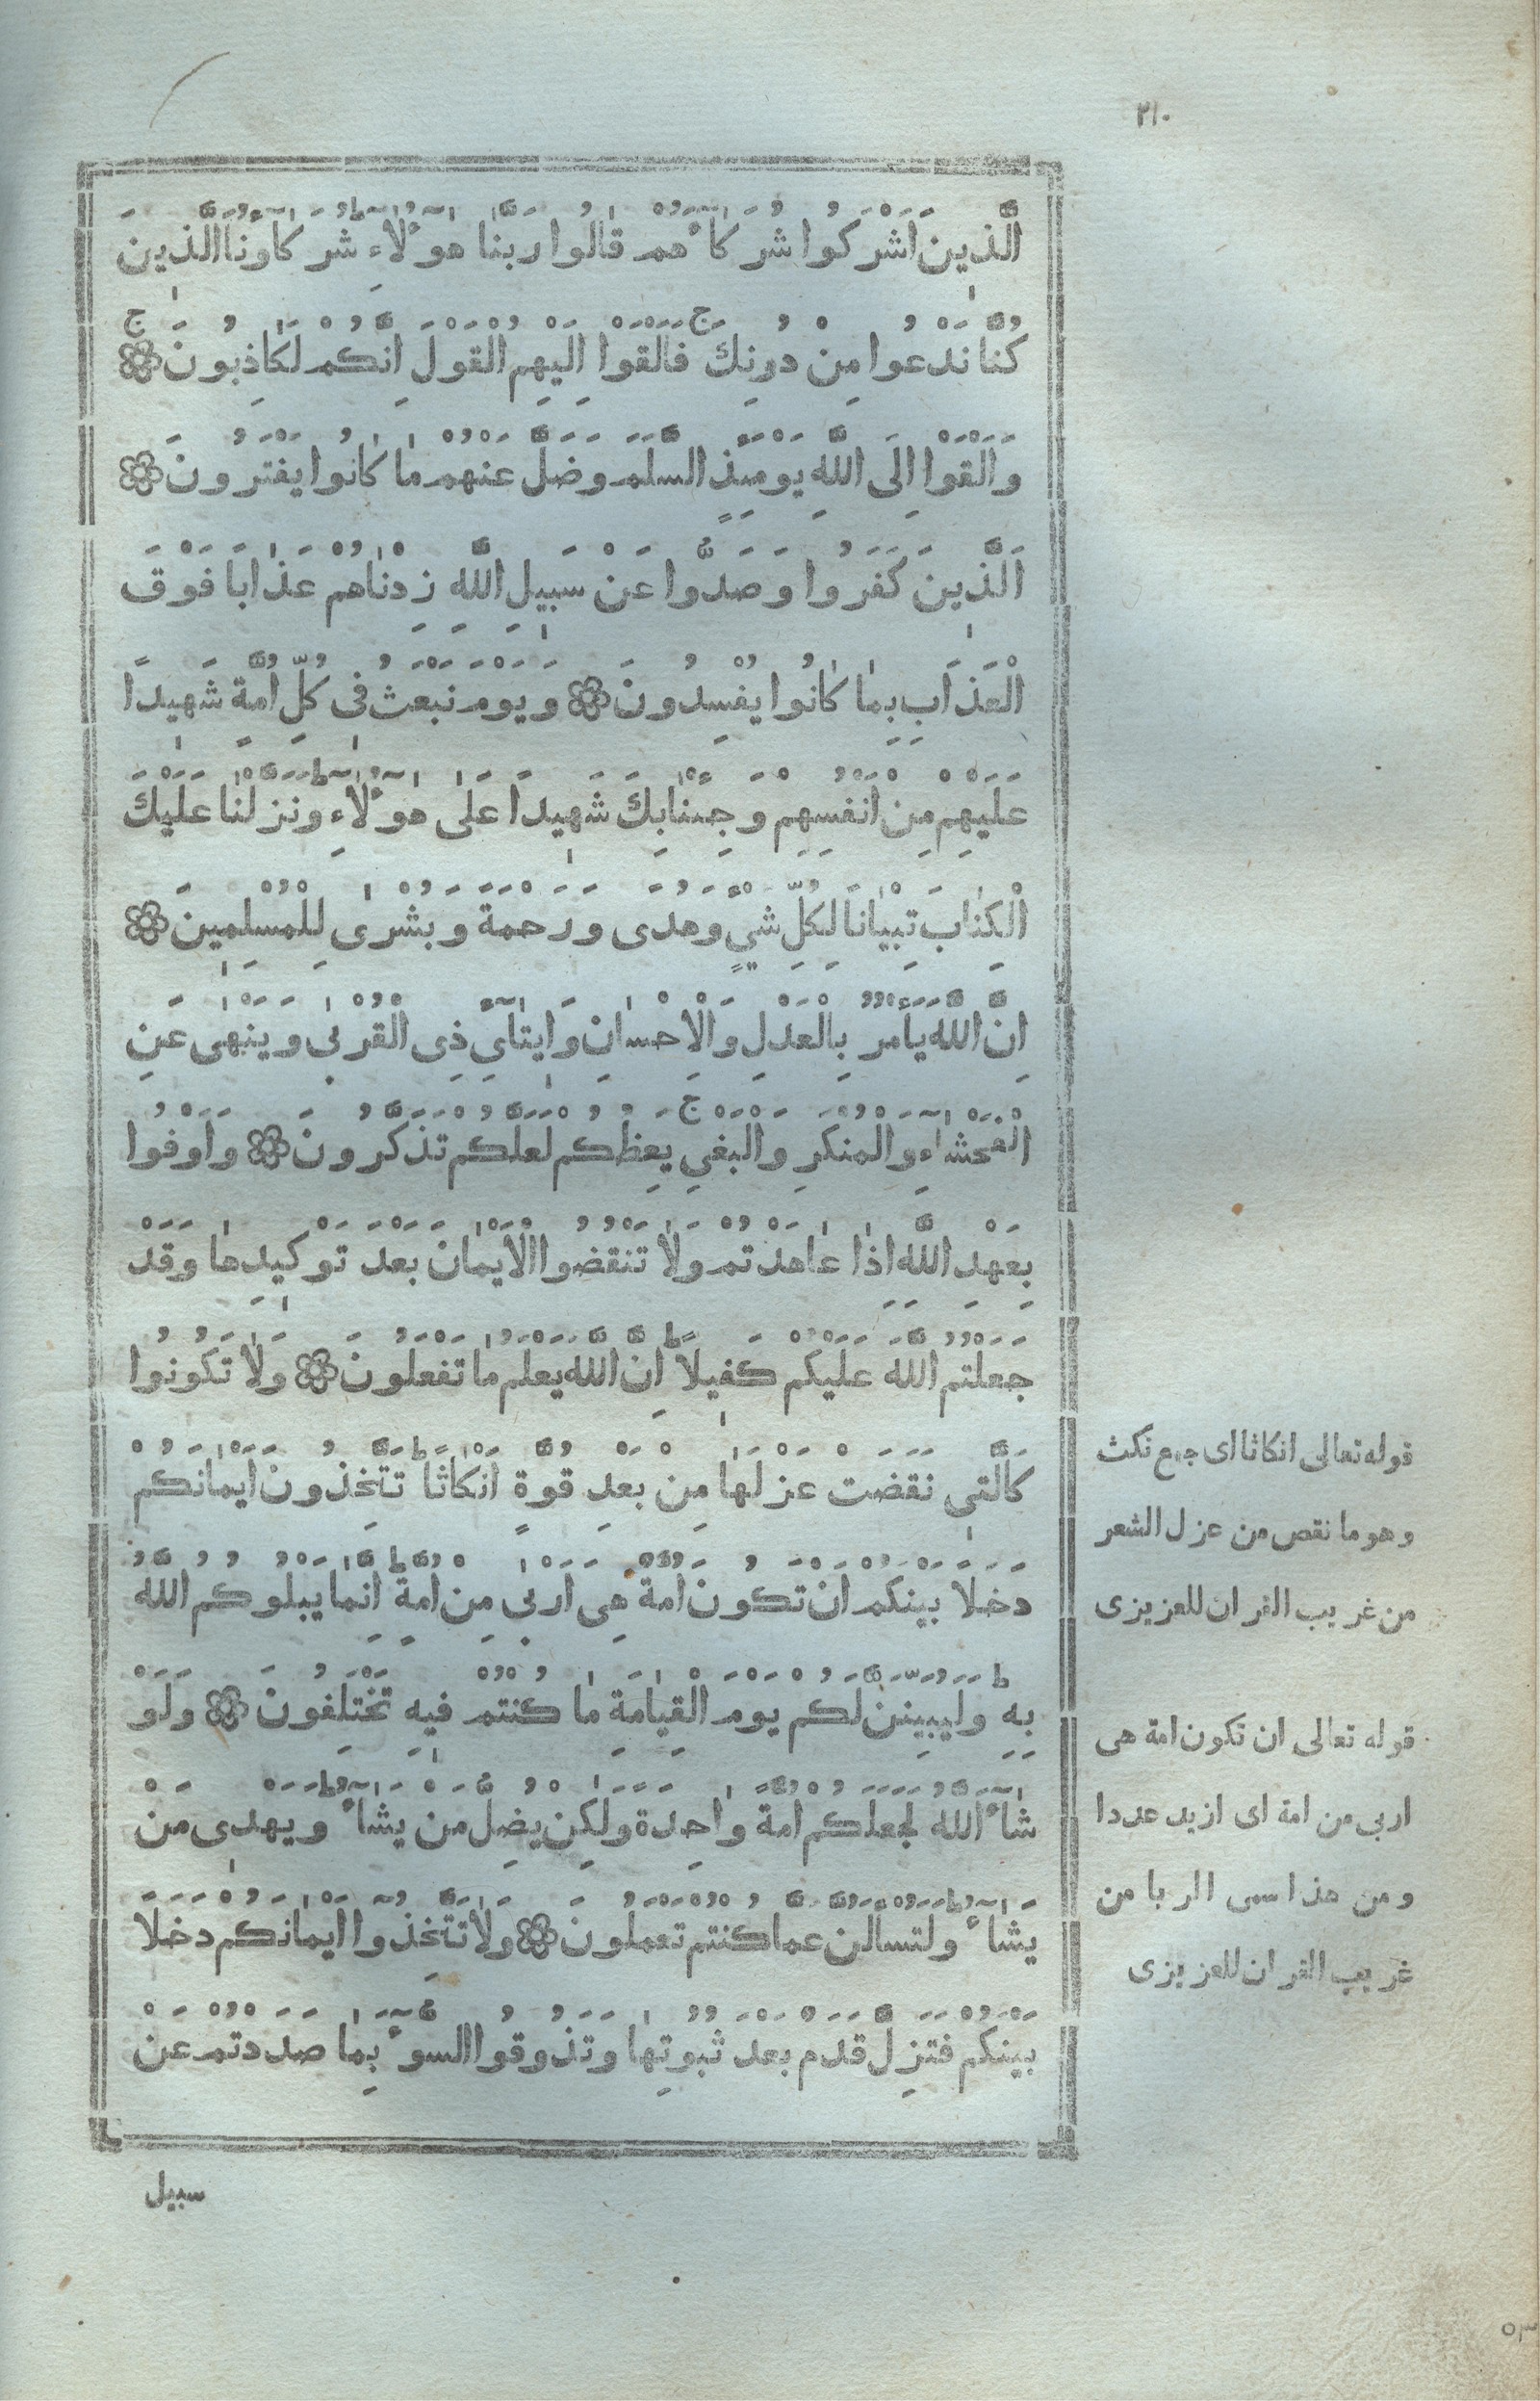 ٢١٠
الَّذِينَ اَشْرَكُوا شُرَكَاۤءَهُمْ قَالُوا رَبَّنَا هٰۤؤُلَاۤءِ شُرَكَاۤؤُنَا الَّذِينَ
كُنَّا نَدْعُوا مِنْ دُونِكَ ج فَاَلْقَوْا اِلَيْهِمُ الْقَوْلَ اِنَّكُمْ لَكَاذِبُونَ ج ۝
وَاَلْقَوْا اِلَى اللّٰهِ يَوْمَئِذٍ السَّلَمَ وَضَلَّ عَنْهُمْ مَا كَانُوا يَفْتَرُونَ ۝
اَلَّذِينَ كَفَرُوا وَصَدُّوا عَنْ سَبِيلِ اللّٰهِ زِدْنَاهُمْ عَذَابًا فَوْقَ
الْعَذَابِ بِمَا كَانُوا يُفْسِدُونَ ۝ وَيَوْمَ نَبْعَثُ فِى كُلِّ اُمَّةٍ شَهِيدًا
عَلَيْهِمْ مِنْ اَنْفُسِهِمْ وَجِئْنَا بِكَ شَهِيدًا عَلٰى هٰۤؤُلَاۤءِ ط وَنَزَّلْنَا عَلَيْكَ
الْكِتَابَ تِبْيَانًا لِكُلِّ شَيْءٍ وَهُدًى وَرَحْمَةً وَبُشْرٰى لِلْمُسْلِمِينَ ۝
اِنَّ اللّٰهَ يَأْمُرُ بِالْعَدْلِ وَالْاِحْسَانِ وَاِيتَاۤئِ ذِى الْقُرْبٰى وَيَنْهٰى عَنِ
الْفَحْشَاۤءِ وَالْمُنْكَرِ وَالْبَغْىِ ج يَعِظُكُمْ لَعَلَّكُمْ تَذَكَّرُونَ ۝ وَاَوْفُوا
بِعَهْدِ اللّٰهِ اِذَا عَاهَدْتُمْ وَلَا تَنْقُضُوا الْاَيْمَانَ بَعْدَ تَوْكِيدِهَا وَقَدْ
جَعَلْتُمُ اللّٰهَ عَلَيْكُمْ كَفِيلًا ط اِنَّ اللّٰهَ يَعْلَمُ مَا تَفْعَلُونَ ۝ وَلَا تَكُونُوا
كَالَّتِى نَقَضَتْ غَزْلَهَا مِنْ بَعْدِ قُوَّةٍ اَنْكَاثًا ط تَتَّخِذُونَ اَيْمَانَكُمْ
دَخَلًا بَيْنَكُمْ اَنْ تَكُونَ اُمَّةٌ هِىَ اَرْبٰى مِنْ اُمَّةٍ ط اِنَّمَا يَبْلُوكُمُ اللّٰهُ
بِهِ ط وَلَيُبَيِّنَنَّ لَكُمْ يَوْمَ الْقِيَامَةِ مَا كُنْتُمْ فِيهِ تَخْتَلِفُونَ ۝ وَلَوْ
شَاۤءَ اللّٰهُ لَجَعَلَكُمْ اُمَّةً وَاحِدَةً وَلٰكِنْ يُضِلُّ مَنْ يَشَاۤءُ ط وَيَهْدِى مَنْ
يَشَاۤءُ ط وَلَتُسْأَلُنَّ عَمَّا كُنْتُمْ تَعْمَلُونَ ۝ وَلَا تَتَّخِذُوۤا اَيْمَانَكُمْ دَخَلًا
بَيْنَكُمْ فَتَزِلَّ قَدَمٌ بَعْدَ ثُبُوتِهَا وَتَذُوقُوا السُّوۤءَ بِمَا صَدَدْتُمْ عَنْ
سبيل
قوله تعالى انكاثا اى جمع نكث
وهو ما نقص من عزل الشعر
من غريب القران للعزيزى
قوله تعالى ان تكون امة هى
اربى من امة اى ازيد عددا
ومن هذا سمى الربا من
غريب القران للعزيزى